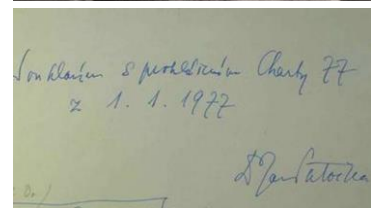 Souhlasím s prohlášením Charty 77
z 1. 1. 1977
Dr Jan Patočka